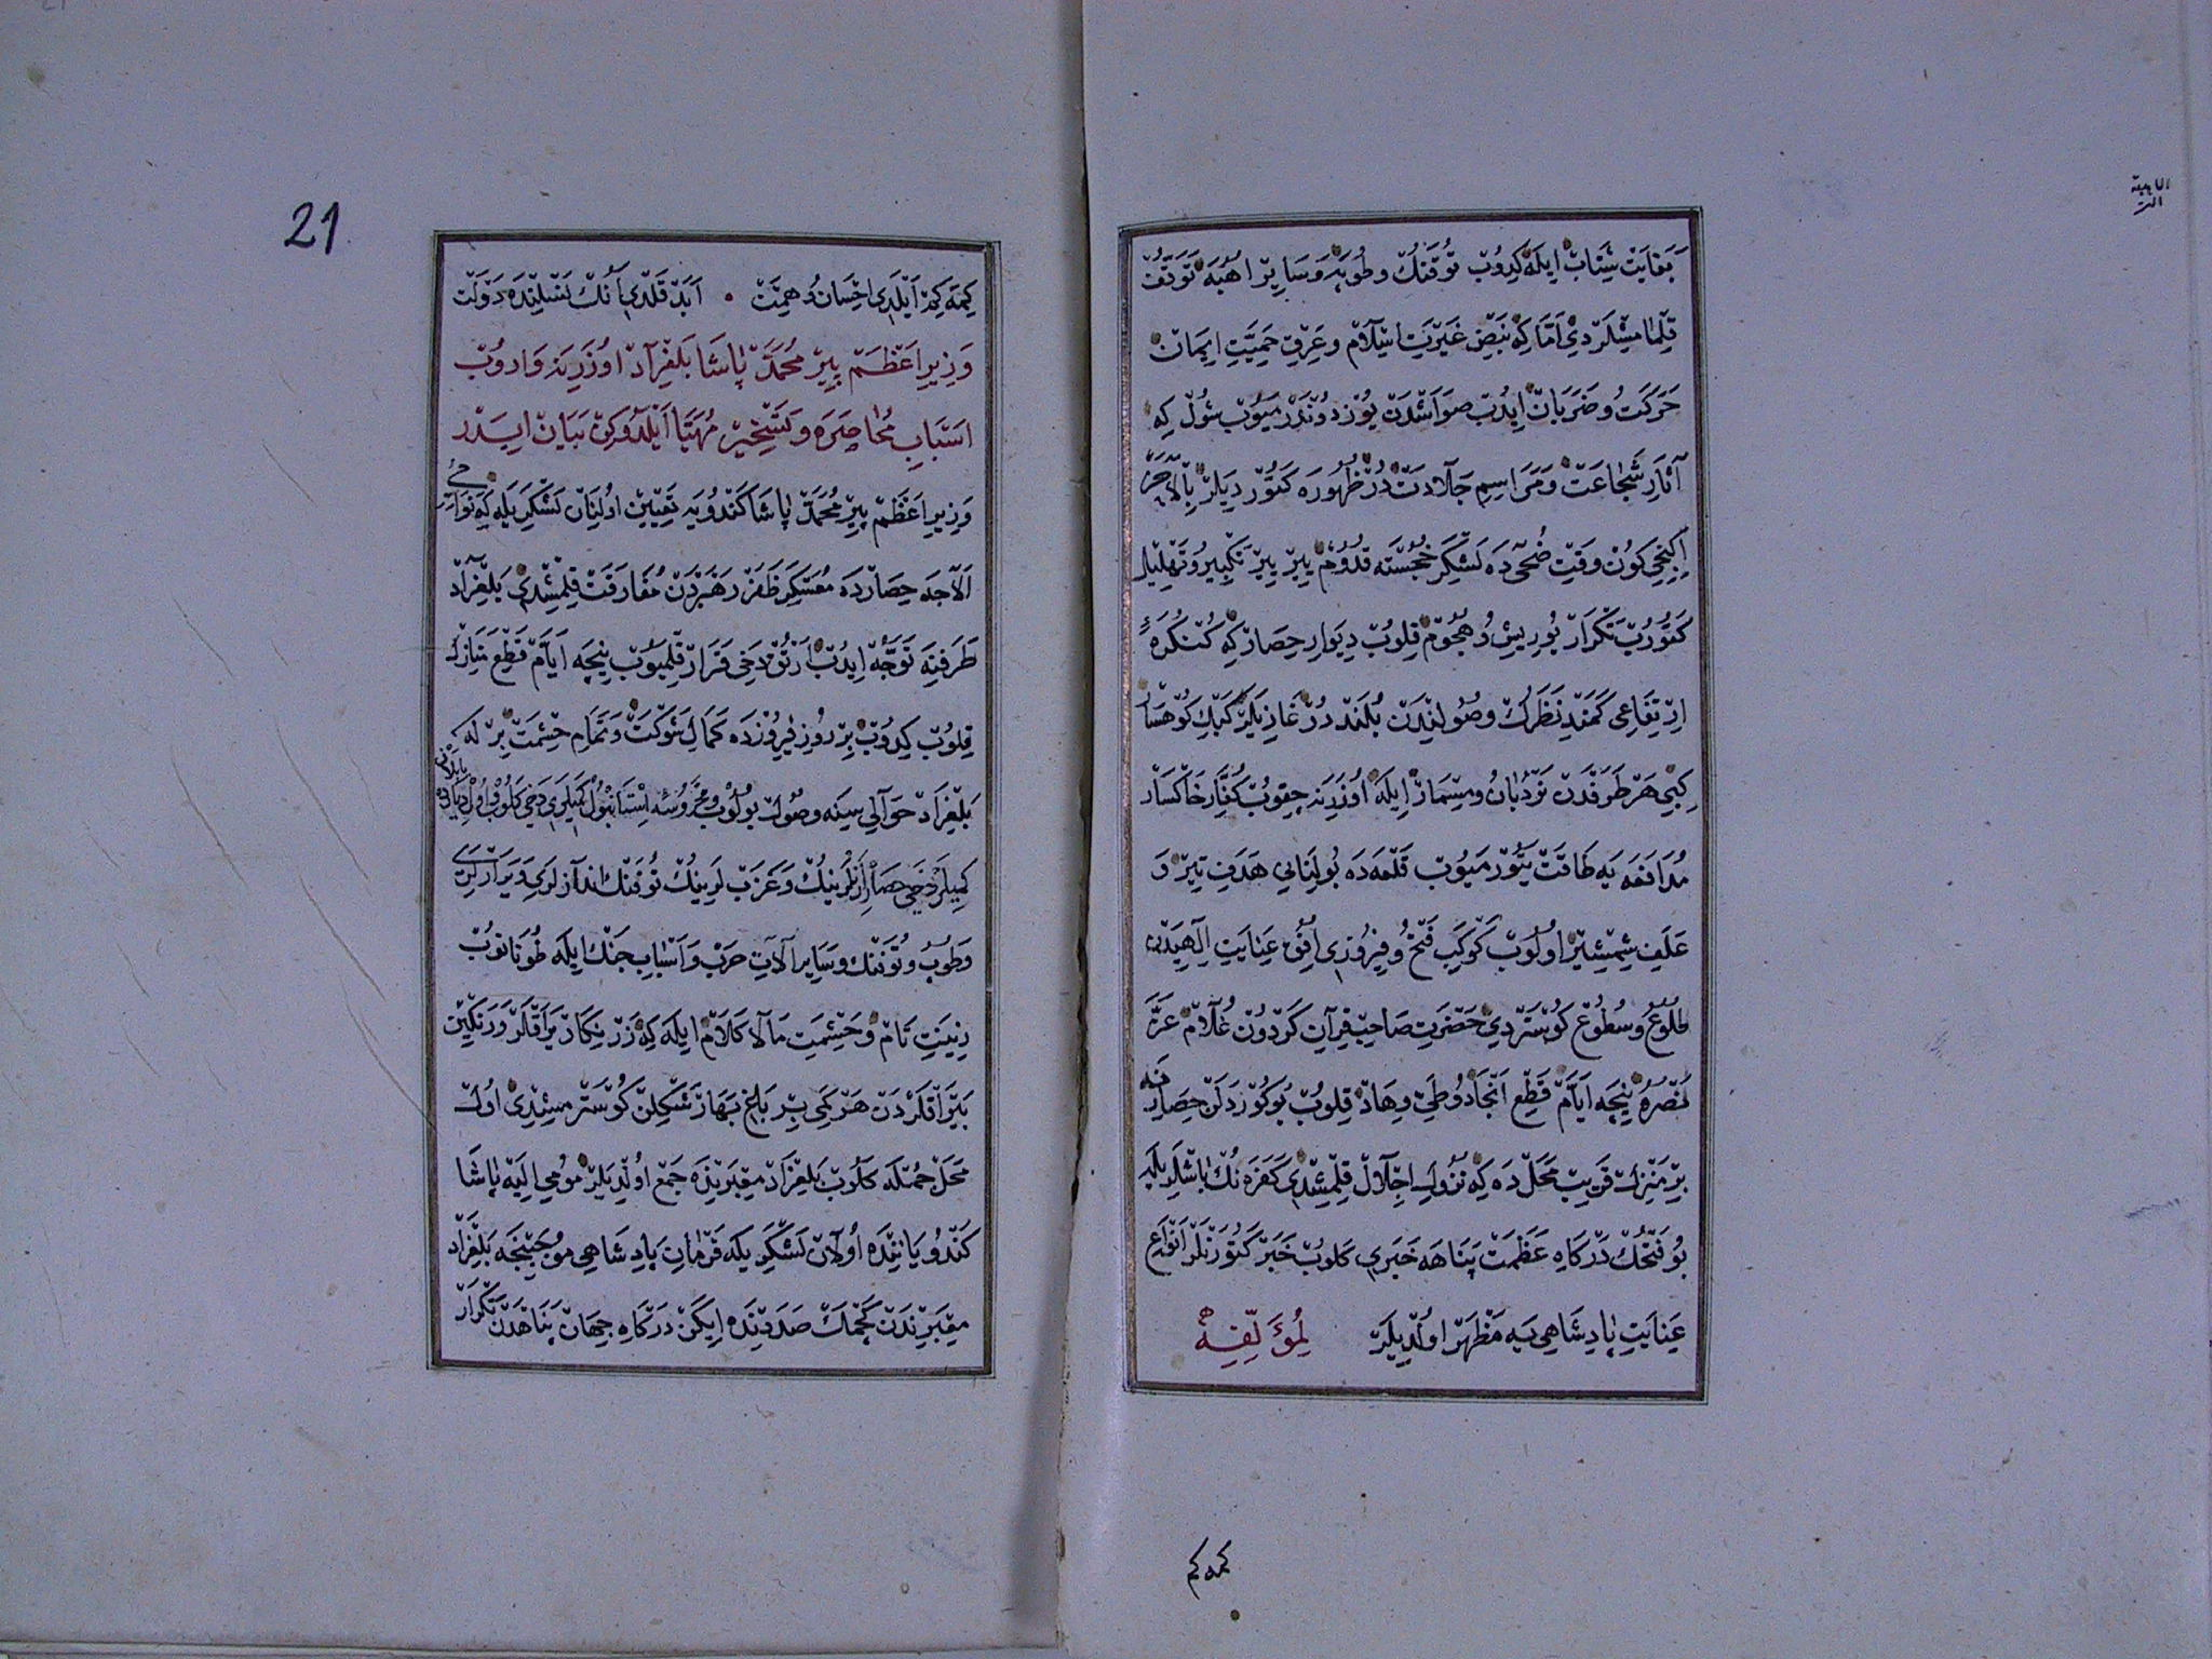 بغایت شتاب ایله کیدوب توفنك وطوپه وسایر اهبه توقف
قلمامشلردی اما که نبض غیرت اسلام وعرق حمیت ایمان
حرکت وضربان ایدوب صواشدن یوز دوندرمیوب شول که
آثار شجاعت ومراسم جلادتدر ظهوره کتوردیلر بالآخره
ایکنجی کون وقت ضحی ده لشکر خجسته قدوم بیر بیر تکبیر وتهلیل
کتوروب تکرار یوریش وهجوم قلوب دیوار حصار که کنکرهٔ
ارتفاعی کمند نظرك وصولندن بلنددر غازیلر کبك کوهسار
کبی هر طرفدن نردبان ومسمار ایله اوزرینه چقوب کفار خاکسار
مدافعه یه طاقت یتورمیوب قلعه ده بولنانی هدف تیر و
علف شمشیر اولوب کوکب فتح وفیروزی افق عنایت الهیدن
طلوع وسطوع کوستردی حضرت صاحب قران کردون غلام عز
نصره نیچه ایام قطع انجاد وطی وهاد قلوب بوکوزدلن حصارنه
بر منزل قریب محل ده که نزول اجلال قلمشدی کفره نك باشلریله
بو فتحك درکاه عظمت پناهه خبری کلوب خبر کتورنلر انواع
عنایت پادشاهی یه مظهر اولدیلر لمؤلفه
کمه کم
21
کمه کیم ایلدی احسان وهمت • ابد قلدی انك نسلنده دولت
وزیر اعظم پیر محمد پاشا بلغراد اوزرینه واروب
اسباب محاصره وتسخیر مهیا ایلدوکن بیان ایدر
وزیر اعظم پیر محمد پاشا کندویه تعیین اولنان لشکر یله که نواحیٔ
الاجه حصارده معسکر ظفر رهبردن مفارقت قلمشدی بلغراد
طرفنه توجه ایدوب ارتق دخی قرار قلمیوب نیچه ایام قطع منازل
قلوب کیدوب بر روز فیروزده کمال شوکت وتمام حشمت برله که
بلغراد حوالی سینه وصول بولوب محروسهٔ استانبول کمیلری دخی کلوب اول دیارده یاپلان
کمیلر دخی حصار ارنلرینك وعزب لرینك توفنك اندازلری ویراقلری
وطوب وتوفنك وسایر آلات حرب واسباب جنك ایله طونانوب
زینت تام وحشمت مالا کلام ایله که زرنکار یراقلر ورنکین
بیراقلردن هر کمی بر باغ بهار شکلن کوسترمشدی اول
محل جمله کلوب بلغراد معبرنده جمع اولدیلر مومی الیه پاشا
کندو یاننده اولان لشکر یله فرمان پادشاهی موجبنجه بلغراد
معبرندن کچمك صددنده ایکن درکاه جهان پناهدن تکرار